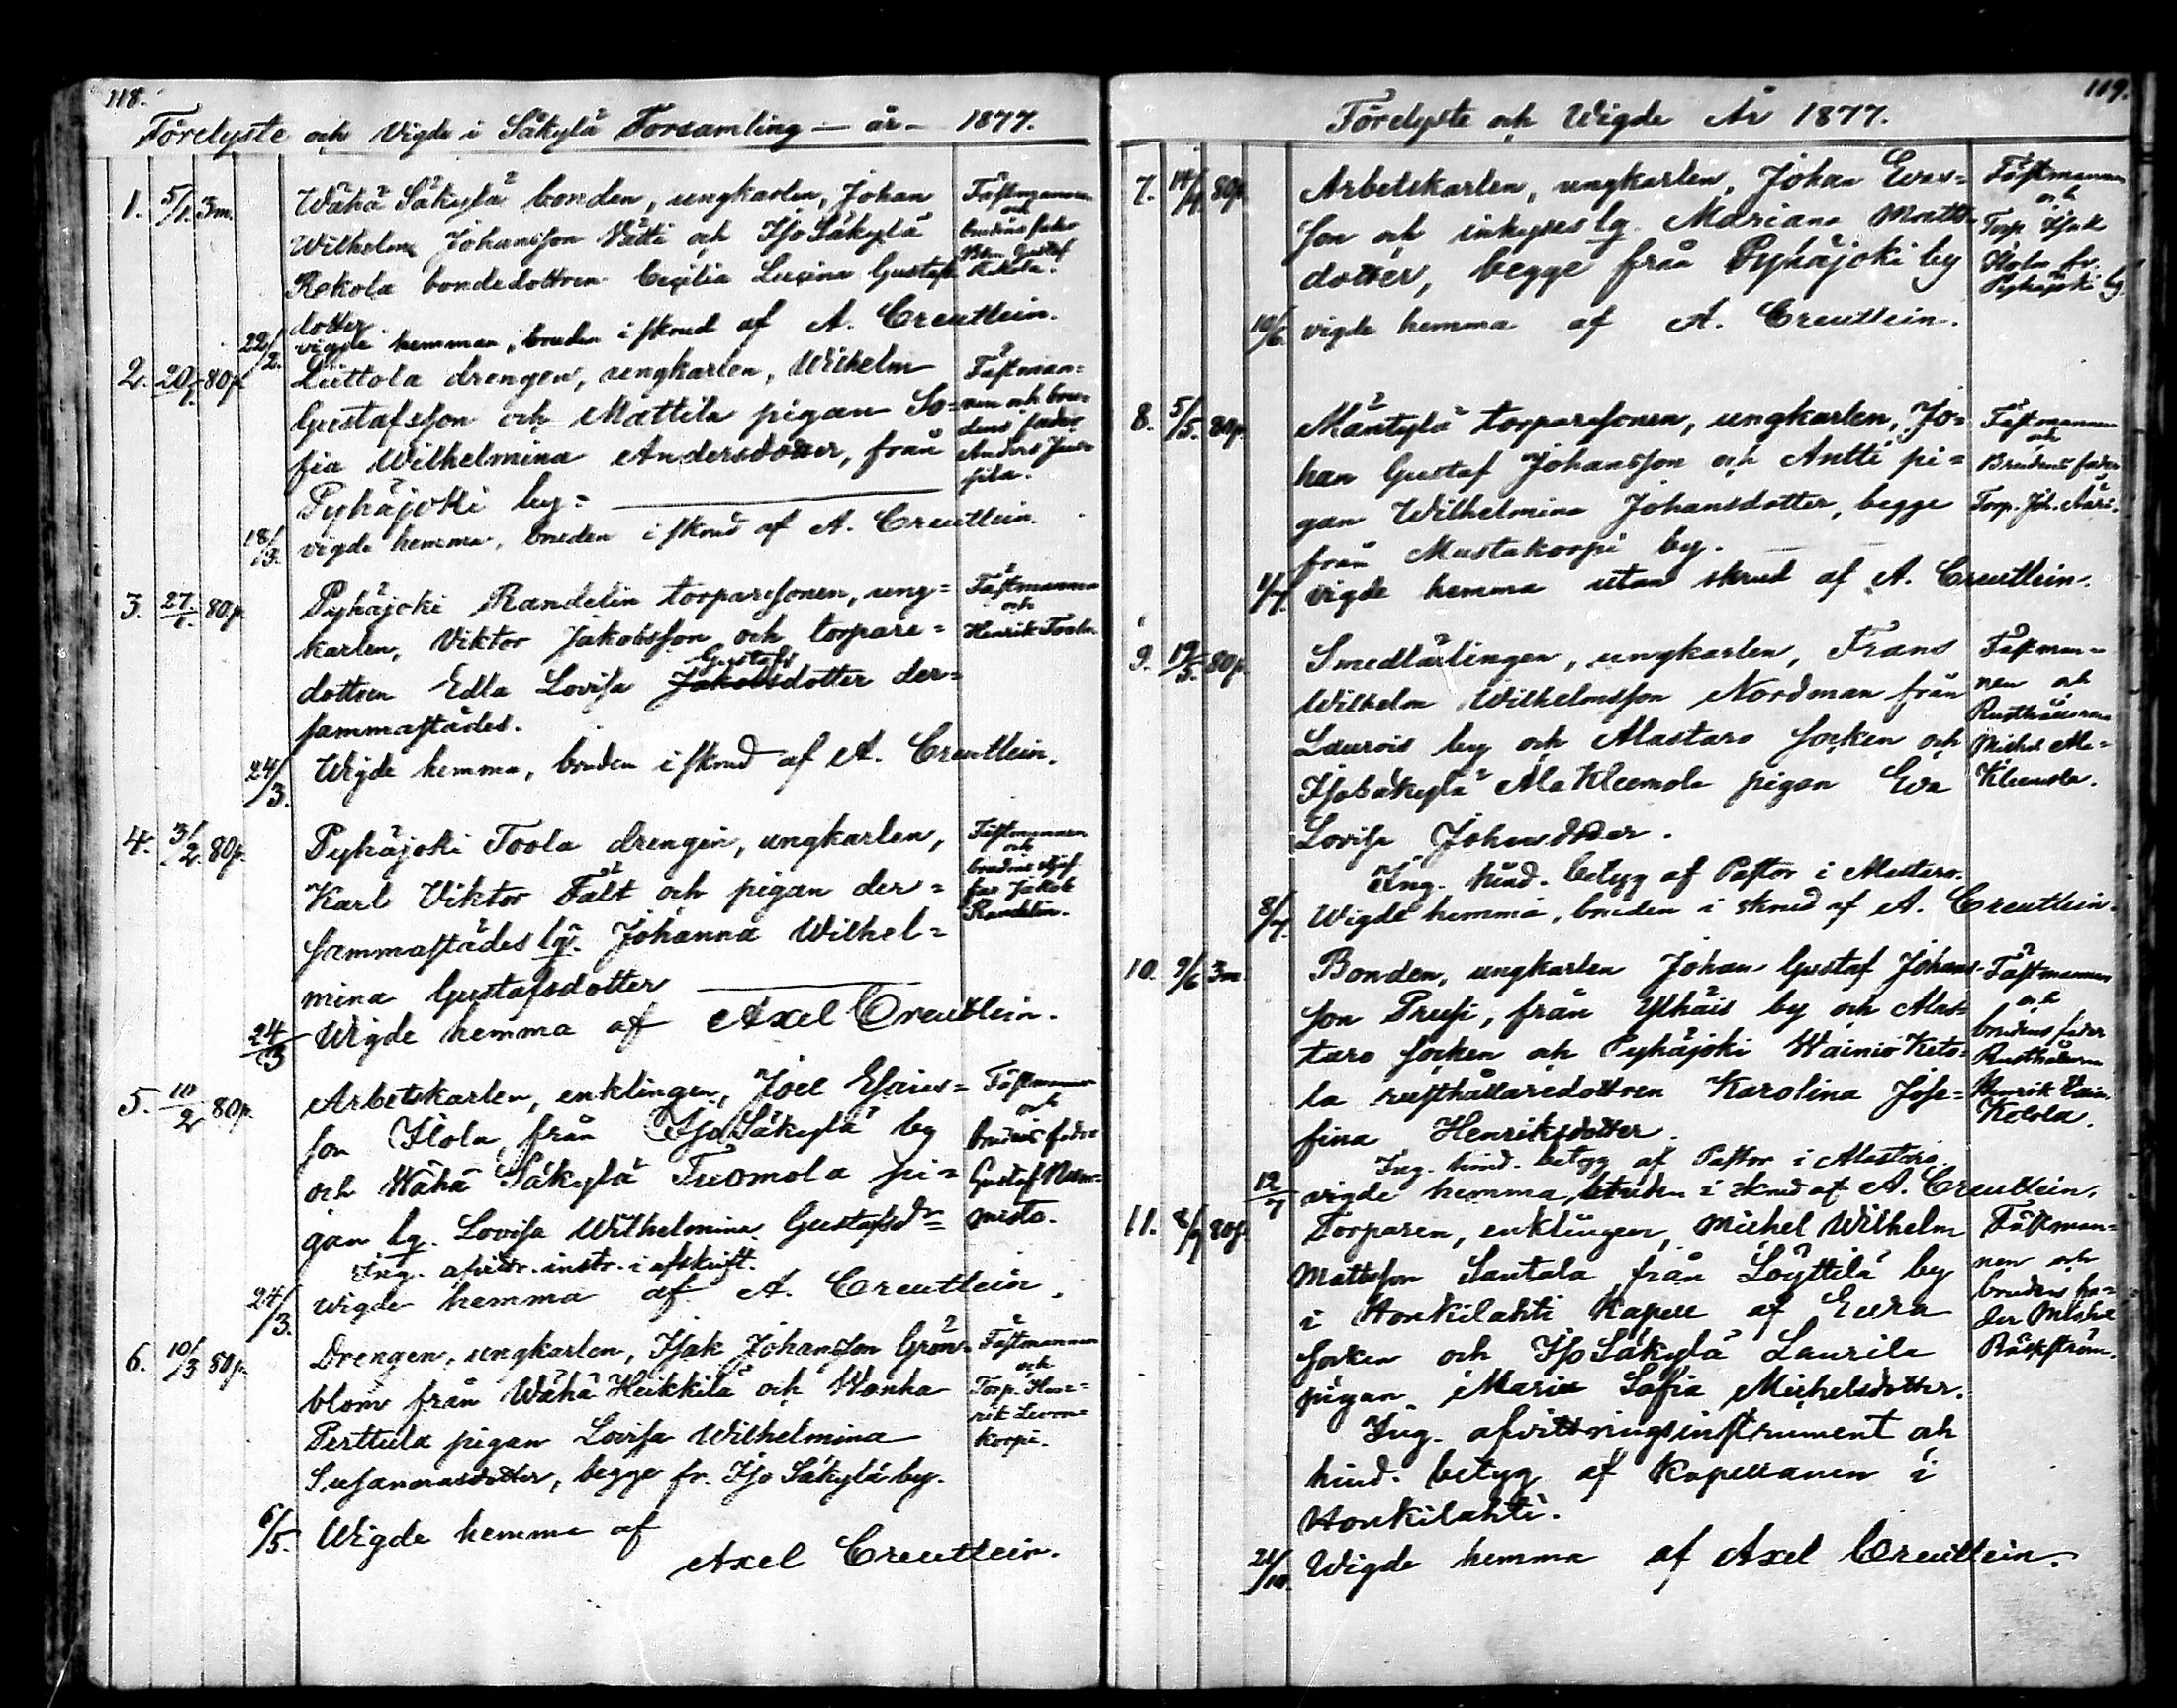 118.
Förelyste och Vigde i Säkylä Församling – år – 1877.
1. 5/1. 3m. Wähä Säkylä bonden, ungkarlen, Johan
Wilhelm Johansson Vätti och Iso Säkylä
Rekola bondedottren Cecilia Lusina Gustafs
dotter.
Fästmannen
och
brudens fader
Bon. Gustaf
Rekola.
22/2. vigde hemma, bruden i skrud af A. Creutlein.
2. 20/1. 80p. Liittola drengen, ungkarlen, Wilhelm
Gustafsson och Mattila pigan So=
fia Wilhelmina Andersdotter, från
Pyhäjoki by.
Fästman=
nen och bru=
dens fader
Anders Jun=
sila.
18/3. vigde hemma, bruden i skrud af A. Creutlein.
3. 27/1. 80p. Pyhäjoki Randelin torparesonen, ung=
karlen, Viktor Jakobsson och torpare=
dottren Edla Lovisa Jakobsdotter der=
Gustafs
sammastädes.
Fästmannen
och
Henrik Toola
24/3. Wigde hemma, bruden i skrud af A. Creutlein.
4. 3/2. 80p. Pyhäjoki Toola drengen, ungkarlen,
Karl Viktor Fält och pigan der=
sammastädes lg. Johanna Wilhel=
mina Gustafsdotter
Fästmannen
och
brudens styf
far Jakob
Randelin.
24/3 Wigde hemma af Axel Creutlein.
5. 10/2 80p. Arbetskarlen, enklingen, Joel Esaias=
son Ilola, från Iso Säkylä by
och Wähä Säkylä Tuomola pi=
gan lg. Lovisa Wilhelmina Gustafsdr
Ing. afvittr. instr. i afskrift.
Fästmannen
och
brudens fader
Gustaf Num=
misto.
24/3. vigde hemma af A. Creutlein.
6. 10/3 80p. Drengen, ungkarlen, Isak Johansson Grön=
blom från Wähä Heikkilä och Wanha
Perttula pigan Lovisa Wilhelmina
Susannasdotter, begge fr. Iso Säkylä by.
Fästmannen
och
Torp. Hen=
rik Levon=
korpi.
6/5. Wigde hemma af
Axel Creutlein.
119.
Förelyste och Wigde År 1877.
7. 14/4 80p. Arbetskarlen, ungkarlen, Johan Evas=
son och inhyses lg. Mariana Matts
dotter, begge från Pyhäjoki by
Fästmannen
och
Torp. Isak
Holm fr.
Pyhäjoki by
10/6. vigde hemma af A. Creutlein.
8. 5/5. 80p. Mäntylä torparesonen, ungkarlen, Jo=
han Gustaf Johansson och Antti pi=
gan Wilhelmina Johansdotter, begge
från Mustakorpi by.
Fästmannen
och
Brudens fader
Torp. Joh. Ääri.
1/7. vigde hemma utan skrud af A. Creutlein.
9. 19/5. 80p. Smedlärlingen, ungkarlen, Frans
Wilhelm Wilhelmsson Nordman från
Laurois by och Alastaro socken och
Iso Säkylä Ala Kleemola pigan Eva
Lovisa Johansdotter.
Ing. hind. betyg af Pastor i Alastaro.
Fästman=
nen och
Rusthållaren
Michel Ala=
Kleemola.
8/7. Wigde hemma, bruden i skrud af A. Creutlein.
10. 9/6 3m. Bonden, ungkarlen Johan Gustaf Johans
son Preusi, från Ylhäis by och Alas=
taro socken och Pyhäjoki Wainio Keto=
la rusthållaredottren Karolina Jose=
fina Henriksdotter.
Ing. hind. betyg af Pastor i Alastaro.
Fästmannen
och
brudens fader
Rusthållaren
Henrik Vain.
Ketola.
12/7 vigde hemma, bruden i skrud af A. Creutlein.
11. 8/9 80p. Torparen, enklingen, Michel Wilhelm
Mattsson Santala från Löyttilä by
i Honkilahti Kapell af Eura
socken och Iso Säkylä Laurila
pigan Maria Sofia Michelsdotter.
Ing. afvittringsinstrument och
hind. betyg af Kapellanen i
Honkilahti.
Fästman=
nen och
brudens fa=
der Michel
Bäckström.
21/10. Wigde hemma af Axel Creutlein.